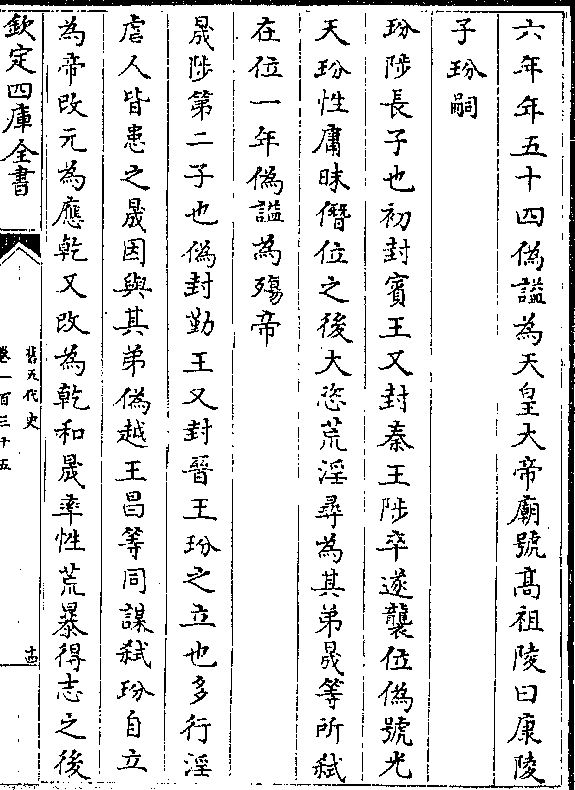 六年年五十四偽諡為天皇大帝廟號髙祖陵曰康陵
子玢嗣
玢陟長子也初封賓王又封秦王陟卒遂襲位偽號光
天玢性庸昧僭位之後大恣荒淫尋為其弟晟等所弑
在位一年偽諡為殤帝
晟陟第二子也偽封勤王又封晉王玢之立也多行淫
虐人皆患之晟因與其弟偽越王昌等同謀弑玢自立
為帝改元為應乾又改為乾和晟率性荒暴得志之後
欽定四庫全書
舊五代史
卷一百三十五
十四